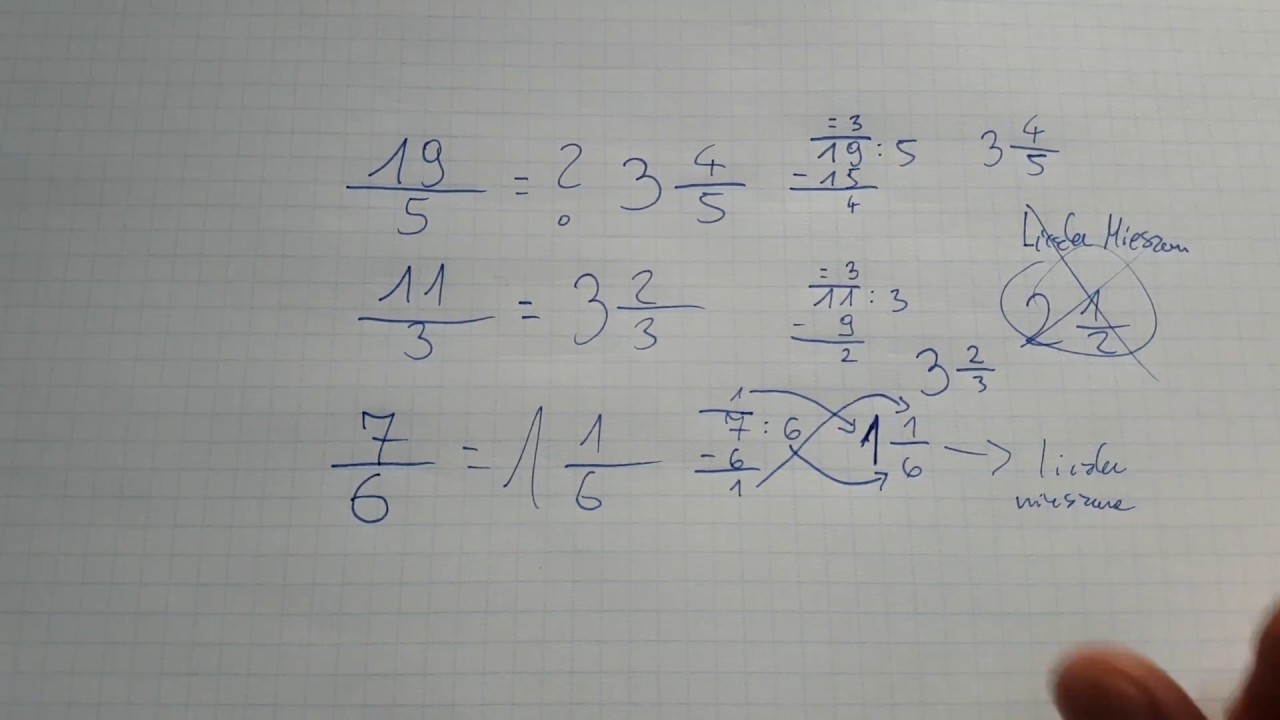 19/5 = ? 3 4/5
= 3
19 : 5
- 15
4
3 4/5
Liczba Mieszan
2 1/2
11/3 = 3 2/3
= 3
11 : 3
- 9
2
3 2/3
7/6 = 1 1/6
1
7 : 6
- 6
1
1 1/6 → liczba
mieszana